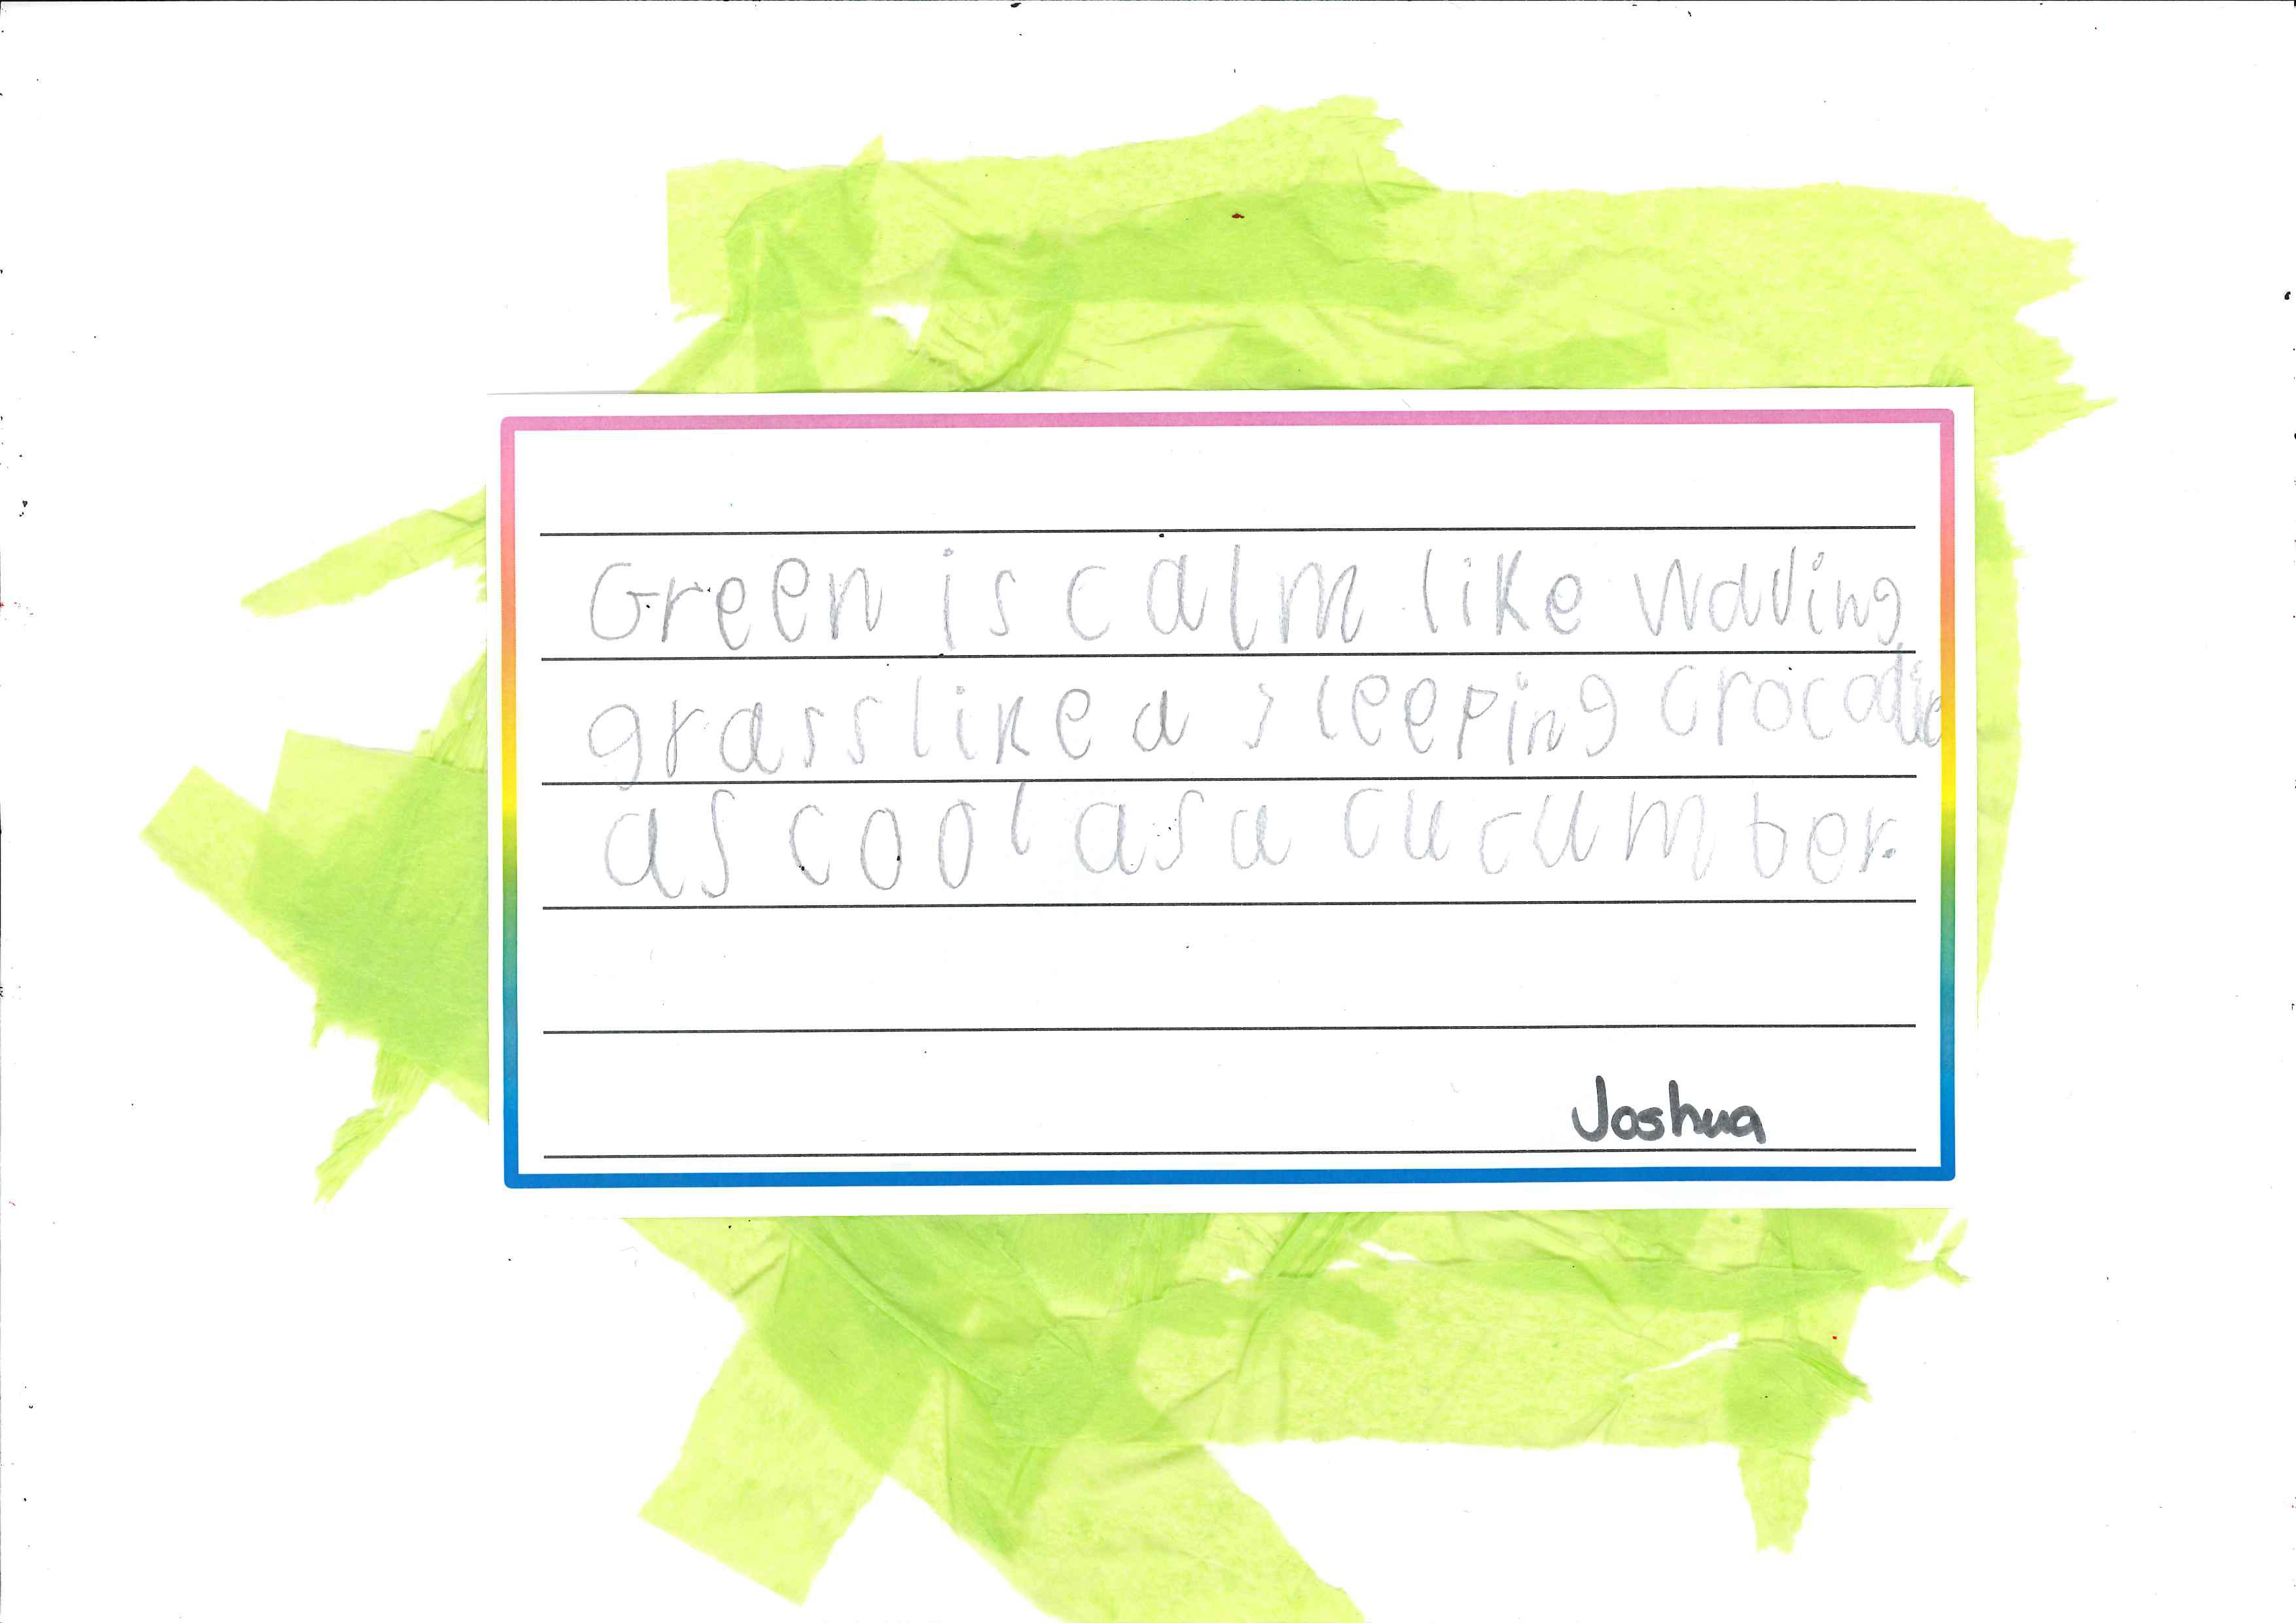 Green is calm like waving
grass like a sleeping crocodile
as cool as a cucumber.
Joshua